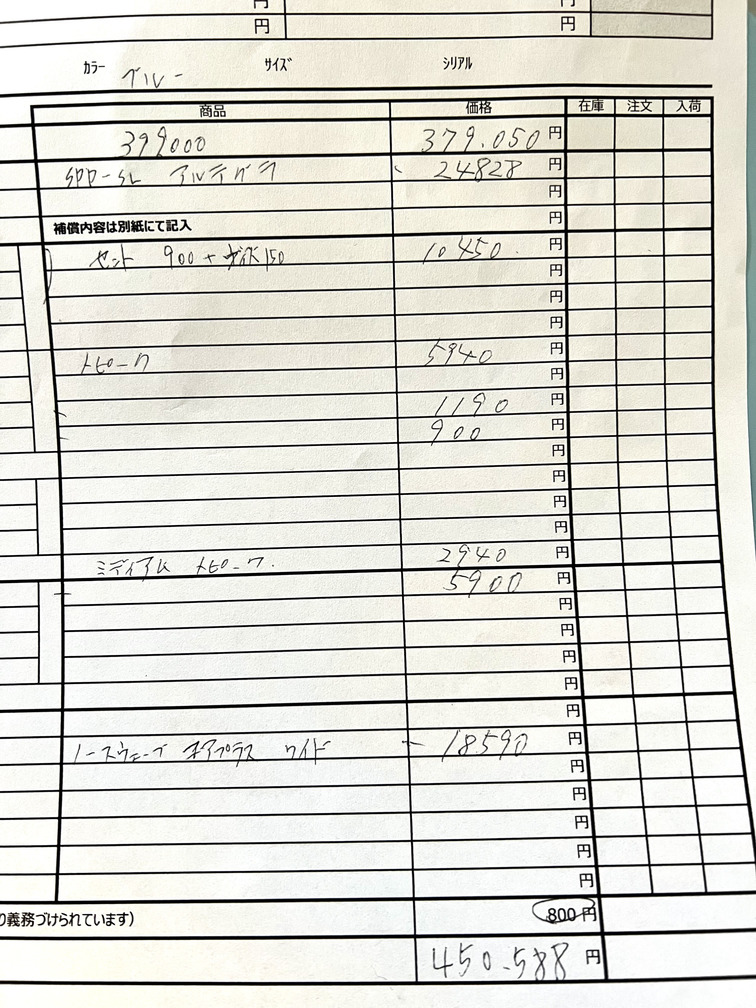 円 円
円 円
カラー ブルー サイズ シリアル
商品 価格 在庫 注文 入荷
399000 379.050 円
SPD-SL アルテグラ 24828 円
円
補償内容は別紙にて記入 円
セット 900+ 150 10450 円
円
円
円
トピーク 5940 円
円
1190 円
900 円
円
円
円
円
ミディアム トピーク 2940 円
5900 円
円
円
円
円
円
ノースウェーブ コアプラス ワイド 18590 円
円
円
円
円
円
り義務づけられています) 800 円
450.588 円